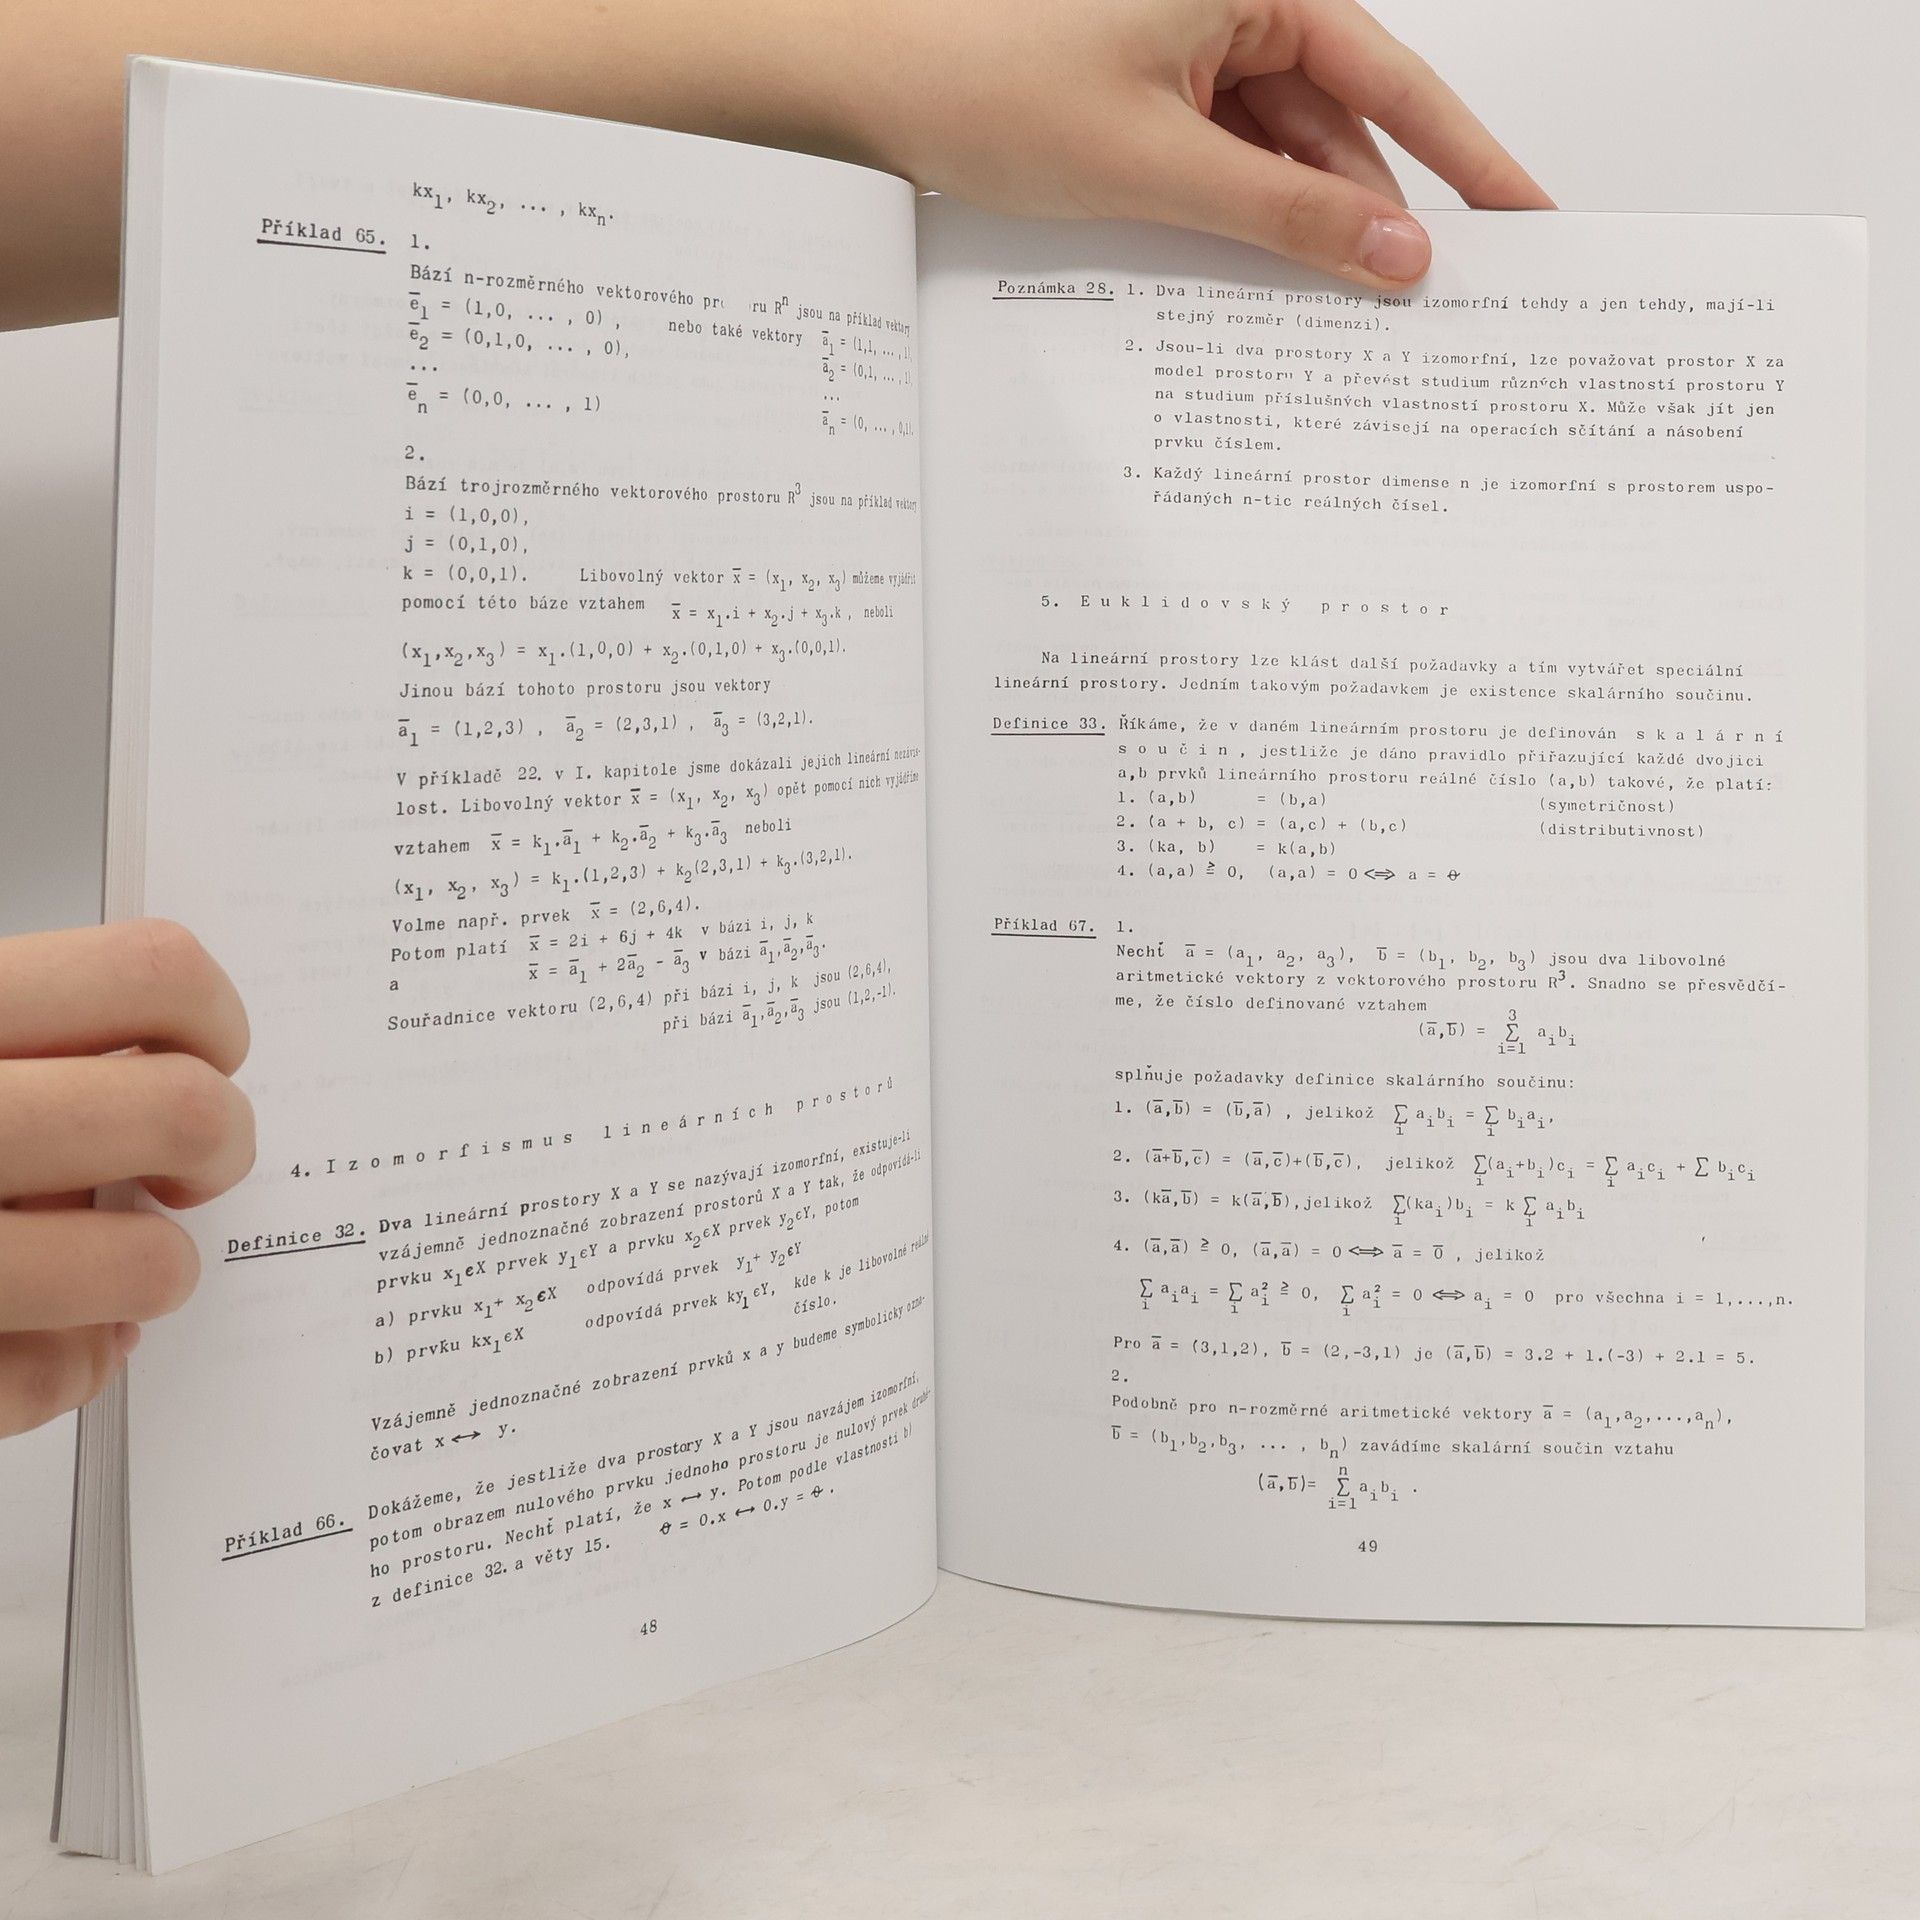 kx1, kx2, ... , kxn.
Příklad 65. 1.
Bází n-rozměrného vektorového ru Rⁿ jsou na příklad vektory
e̅1 = (1,0, ... , 0) , nebo také vektory a̅1 = (1,1, ... ,1),
e̅2 = (0,1,0, ... , 0), a̅2 = (0,1, ... ,1),
... ...
e̅n = (0,0, ... , 1) a̅n = (0, ... ,0,1).
2.
Bází trojrozměrného vektorového prostoru R³ jsou na příklad vektory
i = (1,0,0),
j = (0,1,0),
k = (0,0,1). Libovolný vektor x̅ = (x1, x2, x3) můžeme vyjádřit
pomocí této báze vztahem x̅ = x1.i + x2.j + x3.k , neboli
(x1,x2,x3) = x1.(1,0,0) + x2.(0,1,0) + x3.(0,0,1).
Jinou bází tohoto prostoru jsou vektory
a̅1 = (1,2,3) , a̅2 = (2,3,1) , a̅3 = (3,2,1).
V příkladě 22. v I. kapitole jsme dokázali jejich lineární nezávis-
lost. Libovolný vektor x̅ = (x1, x2, x3) opět pomocí nich vyjádříme
vztahem x̅ = k1.a̅1 + k2.a̅2 + k3.a̅3 neboli
(x1, x2, x3) = k1.(1,2,3) + k2(2,3,1) + k3.(3,2,1).
Volme např. prvek x̅ = (2,6,4).
Potom platí x̅ = 2i + 6j + 4k v bázi i, j, k
a x̅ = a̅1 + 2a̅2 - a̅3 v bázi a̅1,a̅2,a̅3.
Souřadnice vektoru (2,6,4) při bázi i, j, k jsou (2,6,4),
při bázi a̅1,a̅2,a̅3 jsou (1,2,-1).
4. Izomorfismus lineárních prostorů
Definice 32. Dva lineární prostory X a Y se nazývají izomorfní, existuje-li
vzájemně jednoznačné zobrazení prostorů X a Y tak, že odpovídá-li
prvku x1ϵX prvek y1ϵY a prvku x2ϵX prvek y2ϵY, potom
a) prvku x1+ x2ϵX odpovídá prvek y1+ y2ϵY
b) prvku kx1ϵX odpovídá prvek ky1ϵY, kde k je libovolné reálné
číslo.
Vzájemně jednoznačné zobrazení prvků x a y budeme symbolicky ozna-
čovat x ⟷ y.
Příklad 66. Dokážeme, že jestliže dva prostory X a Y jsou navzájem izomorfní,
potom obrazem nulového prvku jednoho prostoru je nulový prvek druhé-
ho prostoru. Nechť platí, že x ⟷ y. Potom podle vlastnosti b)
z definice 32. a věty 15. ϴ = 0.x ⟷ 0.y = ϴ .
48
Poznámka 28. 1. Dva lineární prostory jsou izomorfní tehdy a jen tehdy, mají-li
stejný rozměr (dimenzi).
2. Jsou-li dva prostory X a Y izomorfní, lze považovat prostor X za
model prostoru Y a převést studium různých vlastností prostoru Y
na studium příslušných vlastností prostoru X. Může však jít jen
o vlastnosti, které závisejí na operacích sčítání a násobení
prvku číslem.
3. Každý lineární prostor dimense n je izomorfní s prostorem uspo-
řádaných n-tic reálných čísel.
5. Euklidovský prostor
Na lineární prostory lze klást další požadavky a tím vytvářet speciální
lineární prostory. Jedním takovým požadavkem je existence skalárního součinu.
Definice 33. Říkáme, že v daném lineárním prostoru je definován skalární
součin, jestliže je dáno pravidlo přiřazující každé dvojici
a,b prvků lineárního prostoru reálné číslo (a,b) takové, že platí:
1. (a,b) = (b,a) (symetričnost)
2. (a + b, c) = (a,c) + (b,c) (distributivnost)
3. (ka, b) = k(a,b)
4. (a,a) ≧ 0, (a,a) = 0 ⟺ a = ϴ
Příklad 67. 1.
Nechť a̅ = (a1, a2, a3), b̅ = (b1, b2, b3) jsou dva libovolné
aritmetické vektory z vektorového prostoru R³. Snadno se přesvědčí-
me, že číslo definované vztahem
(a̅,b̅) = 3∑i=1 aibi
splňuje požadavky definice skalárního součinu:
1. (a̅,b̅) = (b̅,a̅) , jelikož ∑i aibi = ∑i biai,
2. (a̅+b̅,c̅) = (a̅,c̅)+(b̅,c̅), jelikož ∑i(ai+bi)ci = ∑i aici + ∑ bici
3. (ka̅,b̅) = k(a̅,b̅),jelikož ∑i(kai)bi = k ∑i aibi
4. (a̅,a̅) ≧ 0, (a̅,a̅) = 0 ⟺ a̅ = 0̅ , jelikož
∑i aiai = ∑i ai² ≧ 0, ∑i ai² = 0 ⟺ ai = 0 pro všechna i = 1,...,n.
Pro a̅ = (3,1,2), b̅ = (2,-3,1) je (a̅,b̅) = 3.2 + 1.(-3) + 2.1 = 5.
2.
Podobně pro n-rozměrné aritmetické vektory a̅ = (a1,a2,...,an),
b̅ = (b1,b2,b3, ... , bn) zavádíme skalární součin vztahu
(a̅,b̅)= n∑i=1 aibi .
49